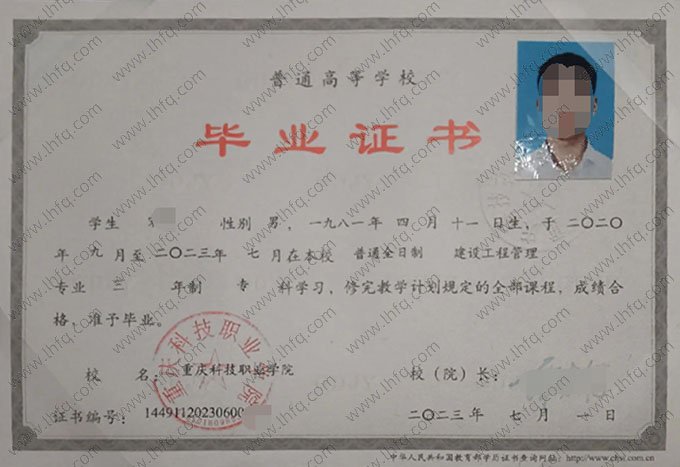 普通高等学校
毕业证书
学生 性别 男，一九八一年 四 月 十一 日生，于 二〇二〇
年 九 月至 二〇二三年 七 月在本校 普通全日制 建设工程管理
专业 三 年制 专 科学习，修完教学计划规定的全部课程，成绩合
格，准予毕业。
重庆科技职业学院
校 名：重庆科技职业学院 校（院）长：
证书编号：14491120230600 二〇二三 年 七 月 一 日
中华人民共和国教育部学历证书查询网址：http://www.chsi.com.cn
www.lhfq.com